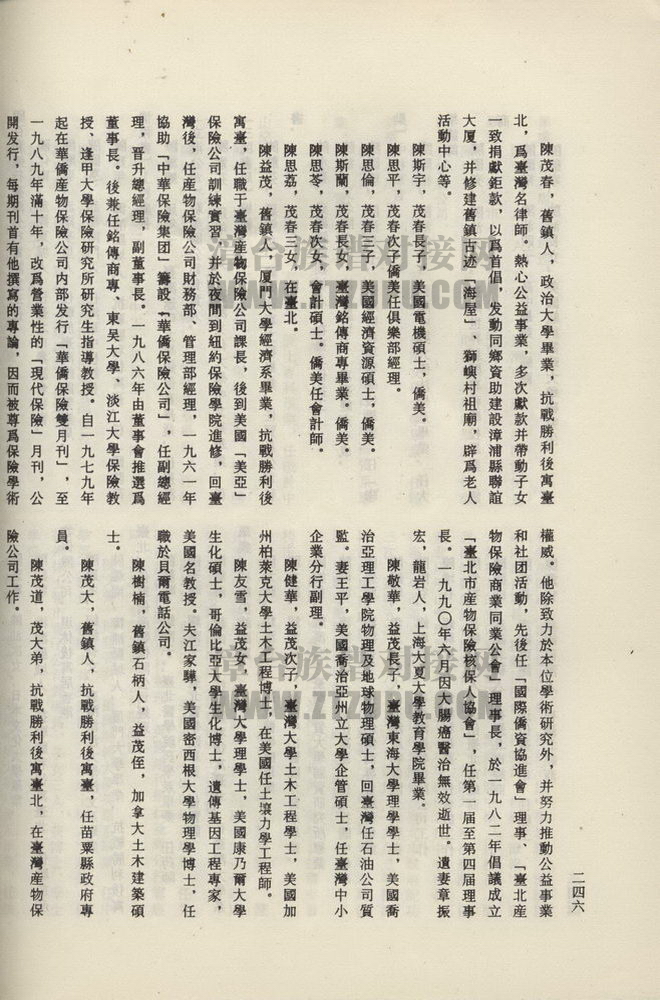 陳茂春，舊鎮人，政治大學畢業，抗戰勝利後寓臺
北，爲臺灣名律師。熱心公益事業，多次獻款并帶動子女
一致捐獻鉅款，以爲首倡，發動同鄉資助建設漳浦縣聯誼
大厦，并修建舊鎮古迹「海屋」、獅嶼村祖廟，辟爲老人
活動中心等。
陳斯宇，茂春長子，美國電機碩士，僑美。
陳思平，茂春次子僑美任俱樂部經理。
陳思倫，茂春三子，美國經濟資源碩士，僑美。
陳斯蘭，茂春長女，臺灣銘傳商專畢業。僑美。
陳思苓，茂春次女，會計碩士。僑美任會計師。
陳思荔，茂春三女，在臺北。
陳益茂，舊鎮人，厦門大學經濟系畢業，抗戰勝利後
寓臺，任職于臺灣産物保險公司課長，後到美國「美亞」
保險公司訓練實習，并於夜間到紐約保險學院進修，回臺
灣後，任産物保險公司財務部、管理部經理，一九六一年
協助「中華保險集团」籌設「華僑保險公司」，任副總經
理，晋升總經理，副董事長。一九八六年由董事會推選爲
董事長。後兼任銘傳商專、東吴大學、淡江大學保險教
授、逢甲大學保險研究所研究生指導教授。自一九七九年
起在華僑産物保險公司内部发行「華僑保險雙月刊」，至
一九八九年滿十年，改爲營業性的「現代保險」月刊，公
開发行，每期刊首有他撰寫的專論，因而被尊爲保險學術
權威。他除致力於本位學術研究外，并努力推動公益事業
和社团活動，先後任「國際僑資協進會」理事、「臺北産
物保險商業同業公會」理事長，於一九八二年倡議成立
「臺北市産物保險核保人協會」，任第一届至第四届理事
長。一九九〇年六月因大腸癌醫治無效逝世。遺妻章振
宏，龍岩人，上海大夏大學教育學院畢業。
陳敬華，益茂長子，臺灣東海大學理學學士，美國喬
治亞理工學院物理及地球物理碩士，回臺灣任石油公司質
監。妻王平，美國喬治亞州立大學企管碩士，任臺灣中小
企業分行副理。
陳健華，益茂次子，臺灣大學土木工程學士，美國加
州柏萊克大學土木工程博士，在美國任土壤力學工程師。
陳友雪，益茂女，臺灣大學理學士，美國康乃爾大學
生化碩士，哥倫比亞大學生化博士，遺傳基因工程專家，
美國名教授。夫江家驊，美國密西根大學物理學博士，任
職於貝爾電話公司。
陳樹楠，舊鎮石柄人，益茂侄，加拿大土木建築碩
士。
陳茂大，舊鎮人，抗戰勝利後寓臺，任苗栗縣政府專
員。
陳茂道，茂大弟，抗戰勝利後寓臺北，在臺灣産物保
險公司工作。
二四六
漳台族谱对接网
WWW.ZTZUPU.COM
漳台族谱对接网
WWW.ZTZUPU.COM